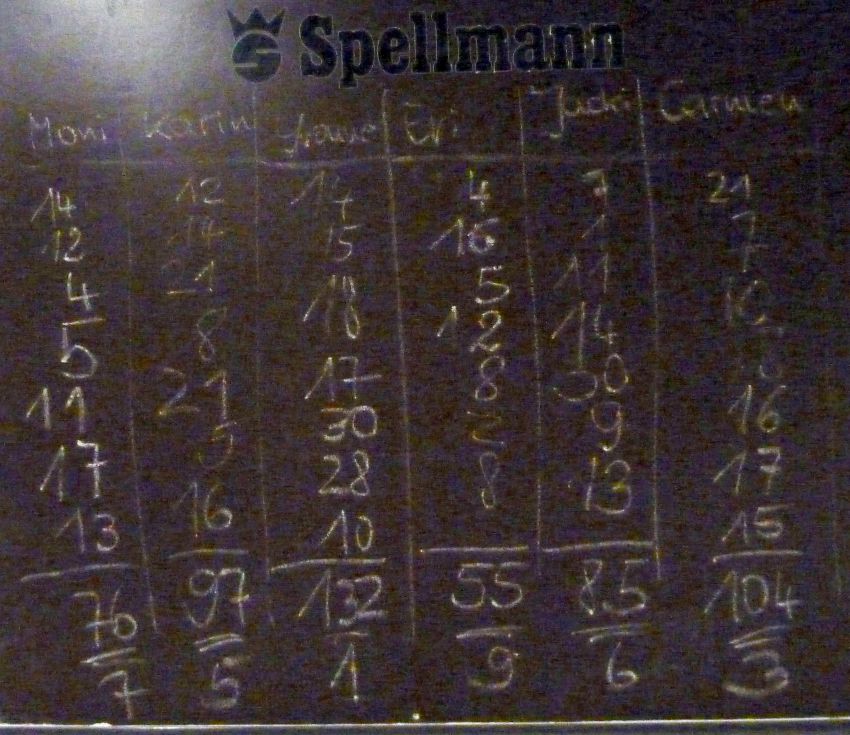 Spellmann
Moni Karin Evi Jacki Carmen
14 12 14 4 7 21
12 14 15 16 1 7
4 21 18 5 11 10
5 8 17 12 14
11 21 30 8 30 16
17 5 28 2 9 17
13 16 10 8 13 15
76 97 132 55 85 104
7 5 1 9 6 3